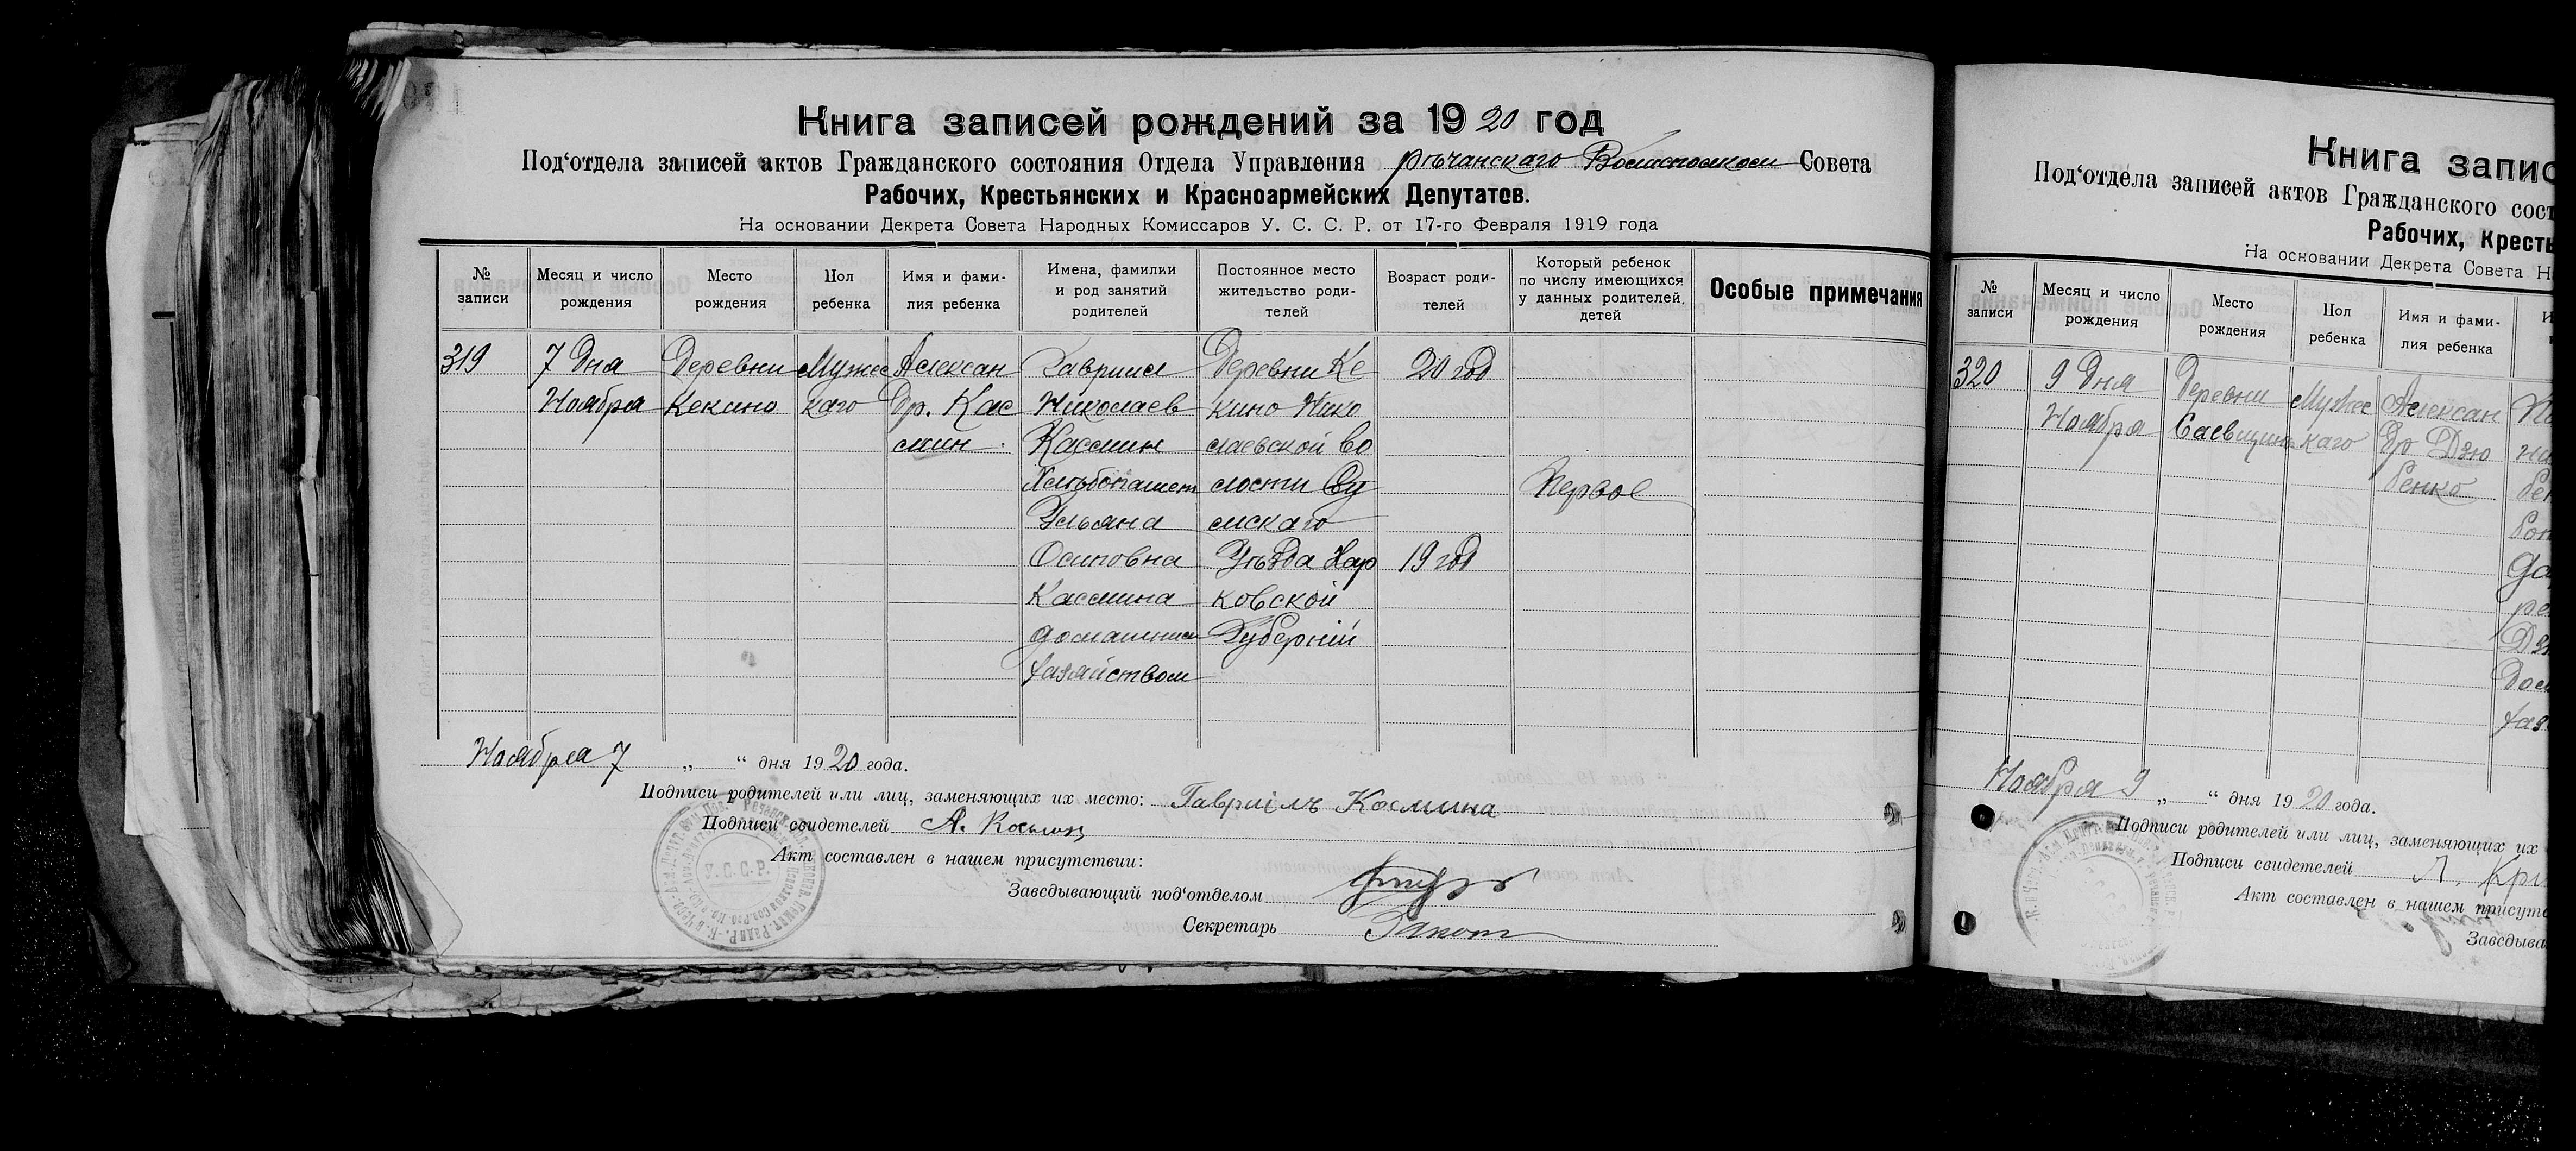 Книга записей рождений за 1920 год
Под‘отдела записей актов Гражданского состояния Отдела Управления Рѣчанскаго Волисполком Совета
Рабочих, Крестьянских и Красноармейских Депутатов.
На основании Декрета Совета Народных Комиссаров У. С. С. Р. от 17-го Февраля 1919 года
№ записи
Месяц и число рождения
Место рождения
Пол ребенка
Имя и фами- лия ребенка
Имена, фамилии и род занятий родителей
Постоянное место жительство роди- телей
Возраст роди- телей
Который ребенок по числу имеющихся у данных родителей, детей
Особые примечания
319 7 Дня Деревни Мужес Алексан Гавриил Деревни Ке 20 год
Ноября Кекино каго др. Кас Николаев кино Нико
мин. Касмин лаевской Во
Хлѣбопашет лости Су Первое
Ульяна мскаго
Осиповна Уѣзда Хар 19 год
Касмина ковской
домашним Губерніи
хазяйством
Ноября 7 „ “ дня 1920 года.
Подписи родителей или лиц, заменяющих их место: Гавріилъ Космина
Подписи свидетелей А. Космин
Акт составлен в нашем присутствии:
Заведывающий под‘отделом
Секретарь
У.С.С.Р.
Книга запис
Под‘отдела записей актов Гражданского сост
Рабочих, Кресть
На основании Декрета Совета Н
№ записи
Месяц и число рождения
Место рождения
Пол ребенка
Имя и фами- лия ребенка
320 9 Дня Деревни Мужес Алексан
Ноября каго др Дзю
бенко
Ноября 9 „ “ дня 1920 года.
Подписи родителей или лиц, заменяющих их
Подписи свидетелей Л. Кри
Акт составлен в нашем присутс
Заведыва